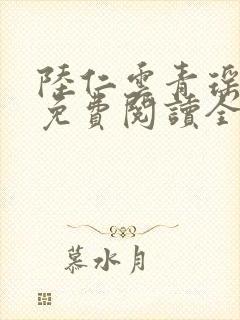 陸仁雲青瑶
免費閱讀全
慕水月